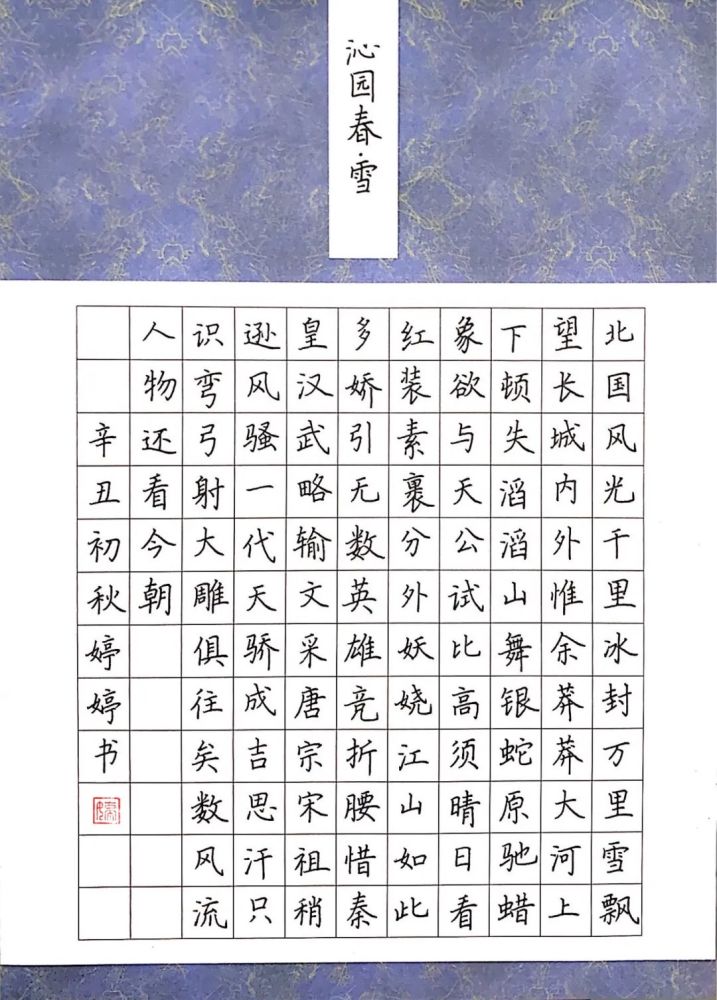 沁园春·雪
北国风光千里冰封万里雪飘
望长城内外惟余莽莽大河上
下顿失滔滔山舞银蛇原驰蜡
象欲与天公试比高须晴日看
红装素裹分外妖娆江山如此
多娇引无数英雄竞折腰惜秦
皇汉武略输文采唐宗宋祖稍
逊风骚一代天骄成吉思汗只
识弯弓射大雕俱往矣数风流
人物还看今朝
辛丑初秋婷婷书
婷